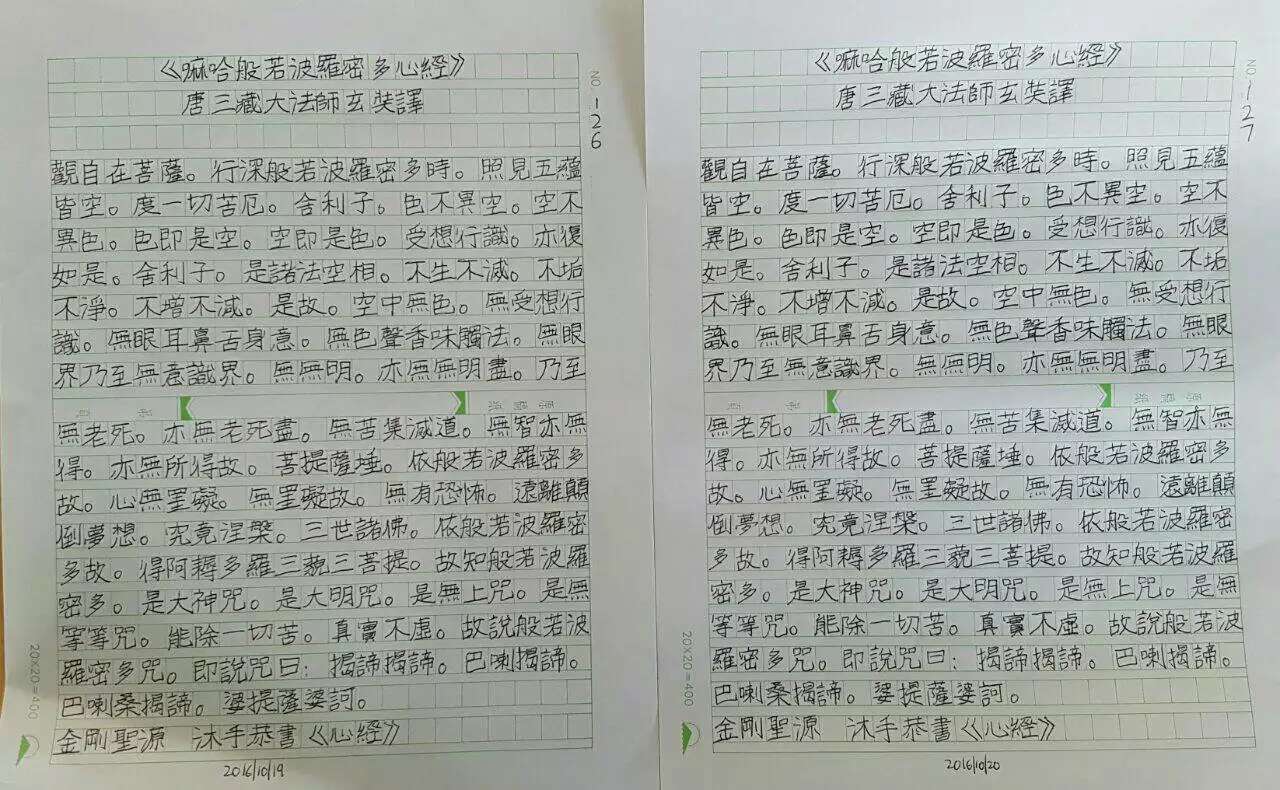 《嘛哈般若波羅密多心經》
唐三藏大法師玄奘譯
NO. 126
觀自在菩薩。行深般若波羅密多時。照見五蘊
皆空。度一切苦厄。舍利子。色不異空。空不
異色。色即是空。空即是色。受想行識。亦復
如是。舍利子。是諸法空相。不生不滅。不垢
不淨。不增不減。是故。空中無色。無受想行
識。無眼耳鼻舌身意。無色聲香味觸法。無眼
界乃至無意識界。無無明。亦無無明盡。乃至
無老死。亦無老死盡。無苦集滅道。無智亦無
得。亦無所得故。菩提薩埵。依般若波羅密多
故。心無罣礙。無罣礙故。無有恐怖。遠離顛
倒夢想。究竟涅槃。三世諸佛。依般若波羅密
多故。得阿耨多羅三藐三菩提。故知般若波羅
密多。是大神咒。是大明咒。是無上咒。是無
等等咒。能除一切苦。真實不虛。故說般若波
羅密多咒。即說咒曰：揭諦揭諦。巴喇揭諦。
巴喇桑揭諦。婆提薩婆訶。
金剛聖源 沐手恭書《心經》
20×20=400
2016/10/19
《嘛哈般若波羅密多心經》
唐三藏大法師玄奘譯
NO. 127
觀自在菩薩。行深般若波羅密多時。照見五蘊
皆空。度一切苦厄。舍利子。色不異空。空不
異色。色即是空。空即是色。受想行識。亦復
如是。舍利子。是諸法空相。不生不滅。不垢
不淨。不增不減。是故。空中無色。無受想行
識。無眼耳鼻舌身意。無色聲香味觸法。無眼
界乃至無意識界。無無明。亦無無明盡。乃至
無老死。亦無老死盡。無苦集滅道。無智亦無
得。亦無所得故。菩提薩埵。依般若波羅密多
故。心無罣礙。無罣礙故。無有恐怖。遠離顛
倒夢想。究竟涅槃。三世諸佛。依般若波羅密
多故。得阿耨多羅三藐三菩提。故知般若波羅
密多。是大神咒。是大明咒。是無上咒。是無
等等咒。能除一切苦。真實不虛。故說般若波
羅密多咒。即說咒曰：揭諦揭諦。巴喇揭諦。
巴喇桑揭諦。婆提薩婆訶。
金剛聖源 沐手恭書《心經》
20×20=400
2016/10/20